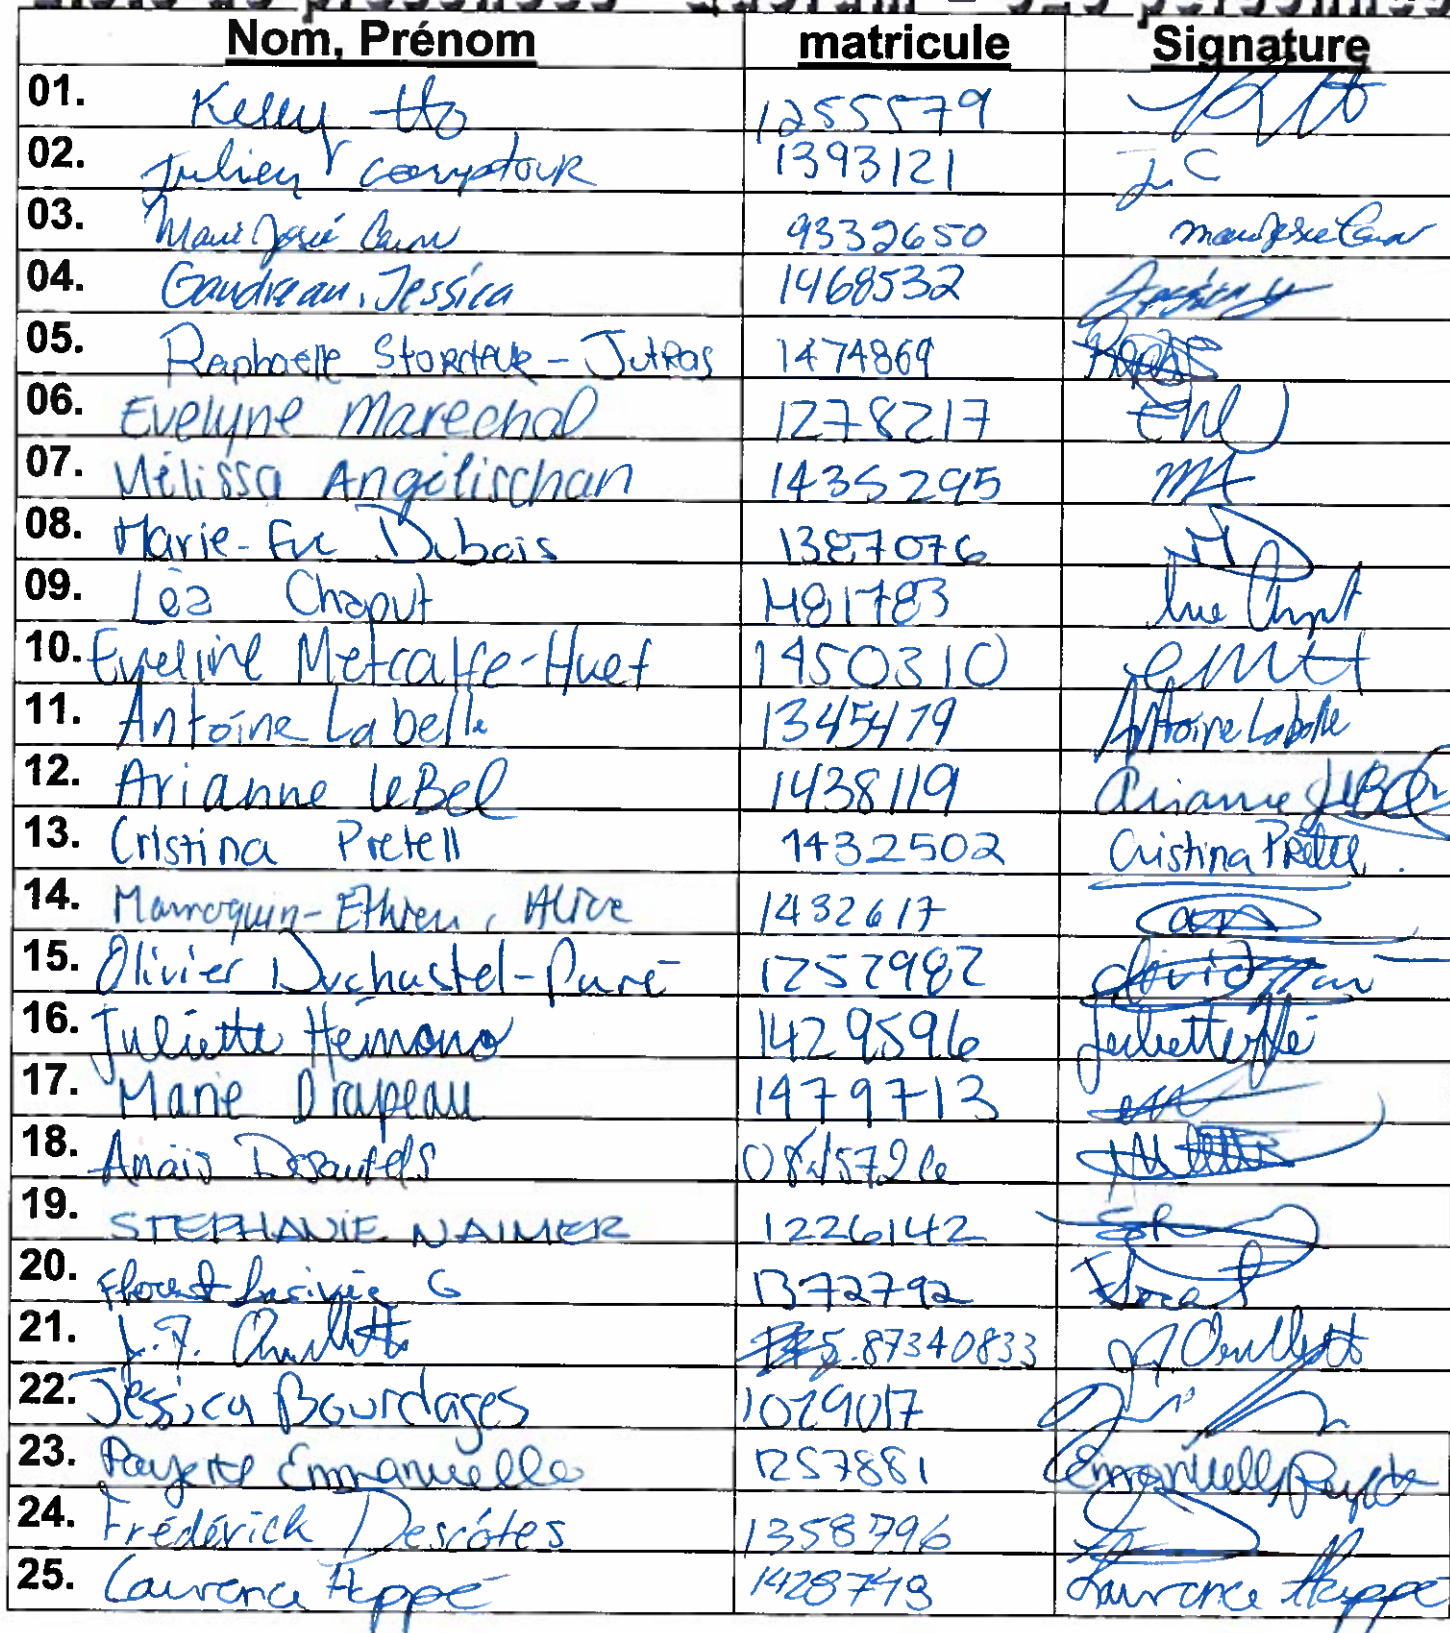 Liste de présences - Quorum - 529 personnes
Nom, Prénom matricule Signature
01. Kelly Ho 1255579
02. Julien Comptour 1393121 J.C
03. Marie Josée 9332650
04. Gaudreau, Jessica 1468532
05. Raphaelle - Jutras 1474869
06. Evelyne Marechal 1278217
07. Mélissa Angélischan 1435295 MA
08. Marie-Eve Dubois 1387076
09. Léa Chaput 1481783
10. Eveline Metcalfe-Huet 1450310 EMH
11. Antoine Labelle 1345479 Antoine Labelle
12. Arianne LeBel 1438119 Arianne LeBel
13. Cristina Pretell 1432502 Cristina Pretell
14. Marroquin-Ethier, Alice 1432617
15. Olivier Duchastel-Paré 1252982
16. Juliette Hémono 1429596 Juliette Hé
17. Marie Drapeau 1479713
18. Anaïs Desautels
19. STEPHANIE NAIMER 1226142
20. Florent G 1372792 Florent
21. J.P. Ouellette 87340833 Ouellette
22. Jessica Bourdages 1029017
23. Payette Emmanuelle 1257881 Emmanuelle Payette
24. Frédérick Descôtes 1358796
25. Laurence Heppé Laurence Heppé